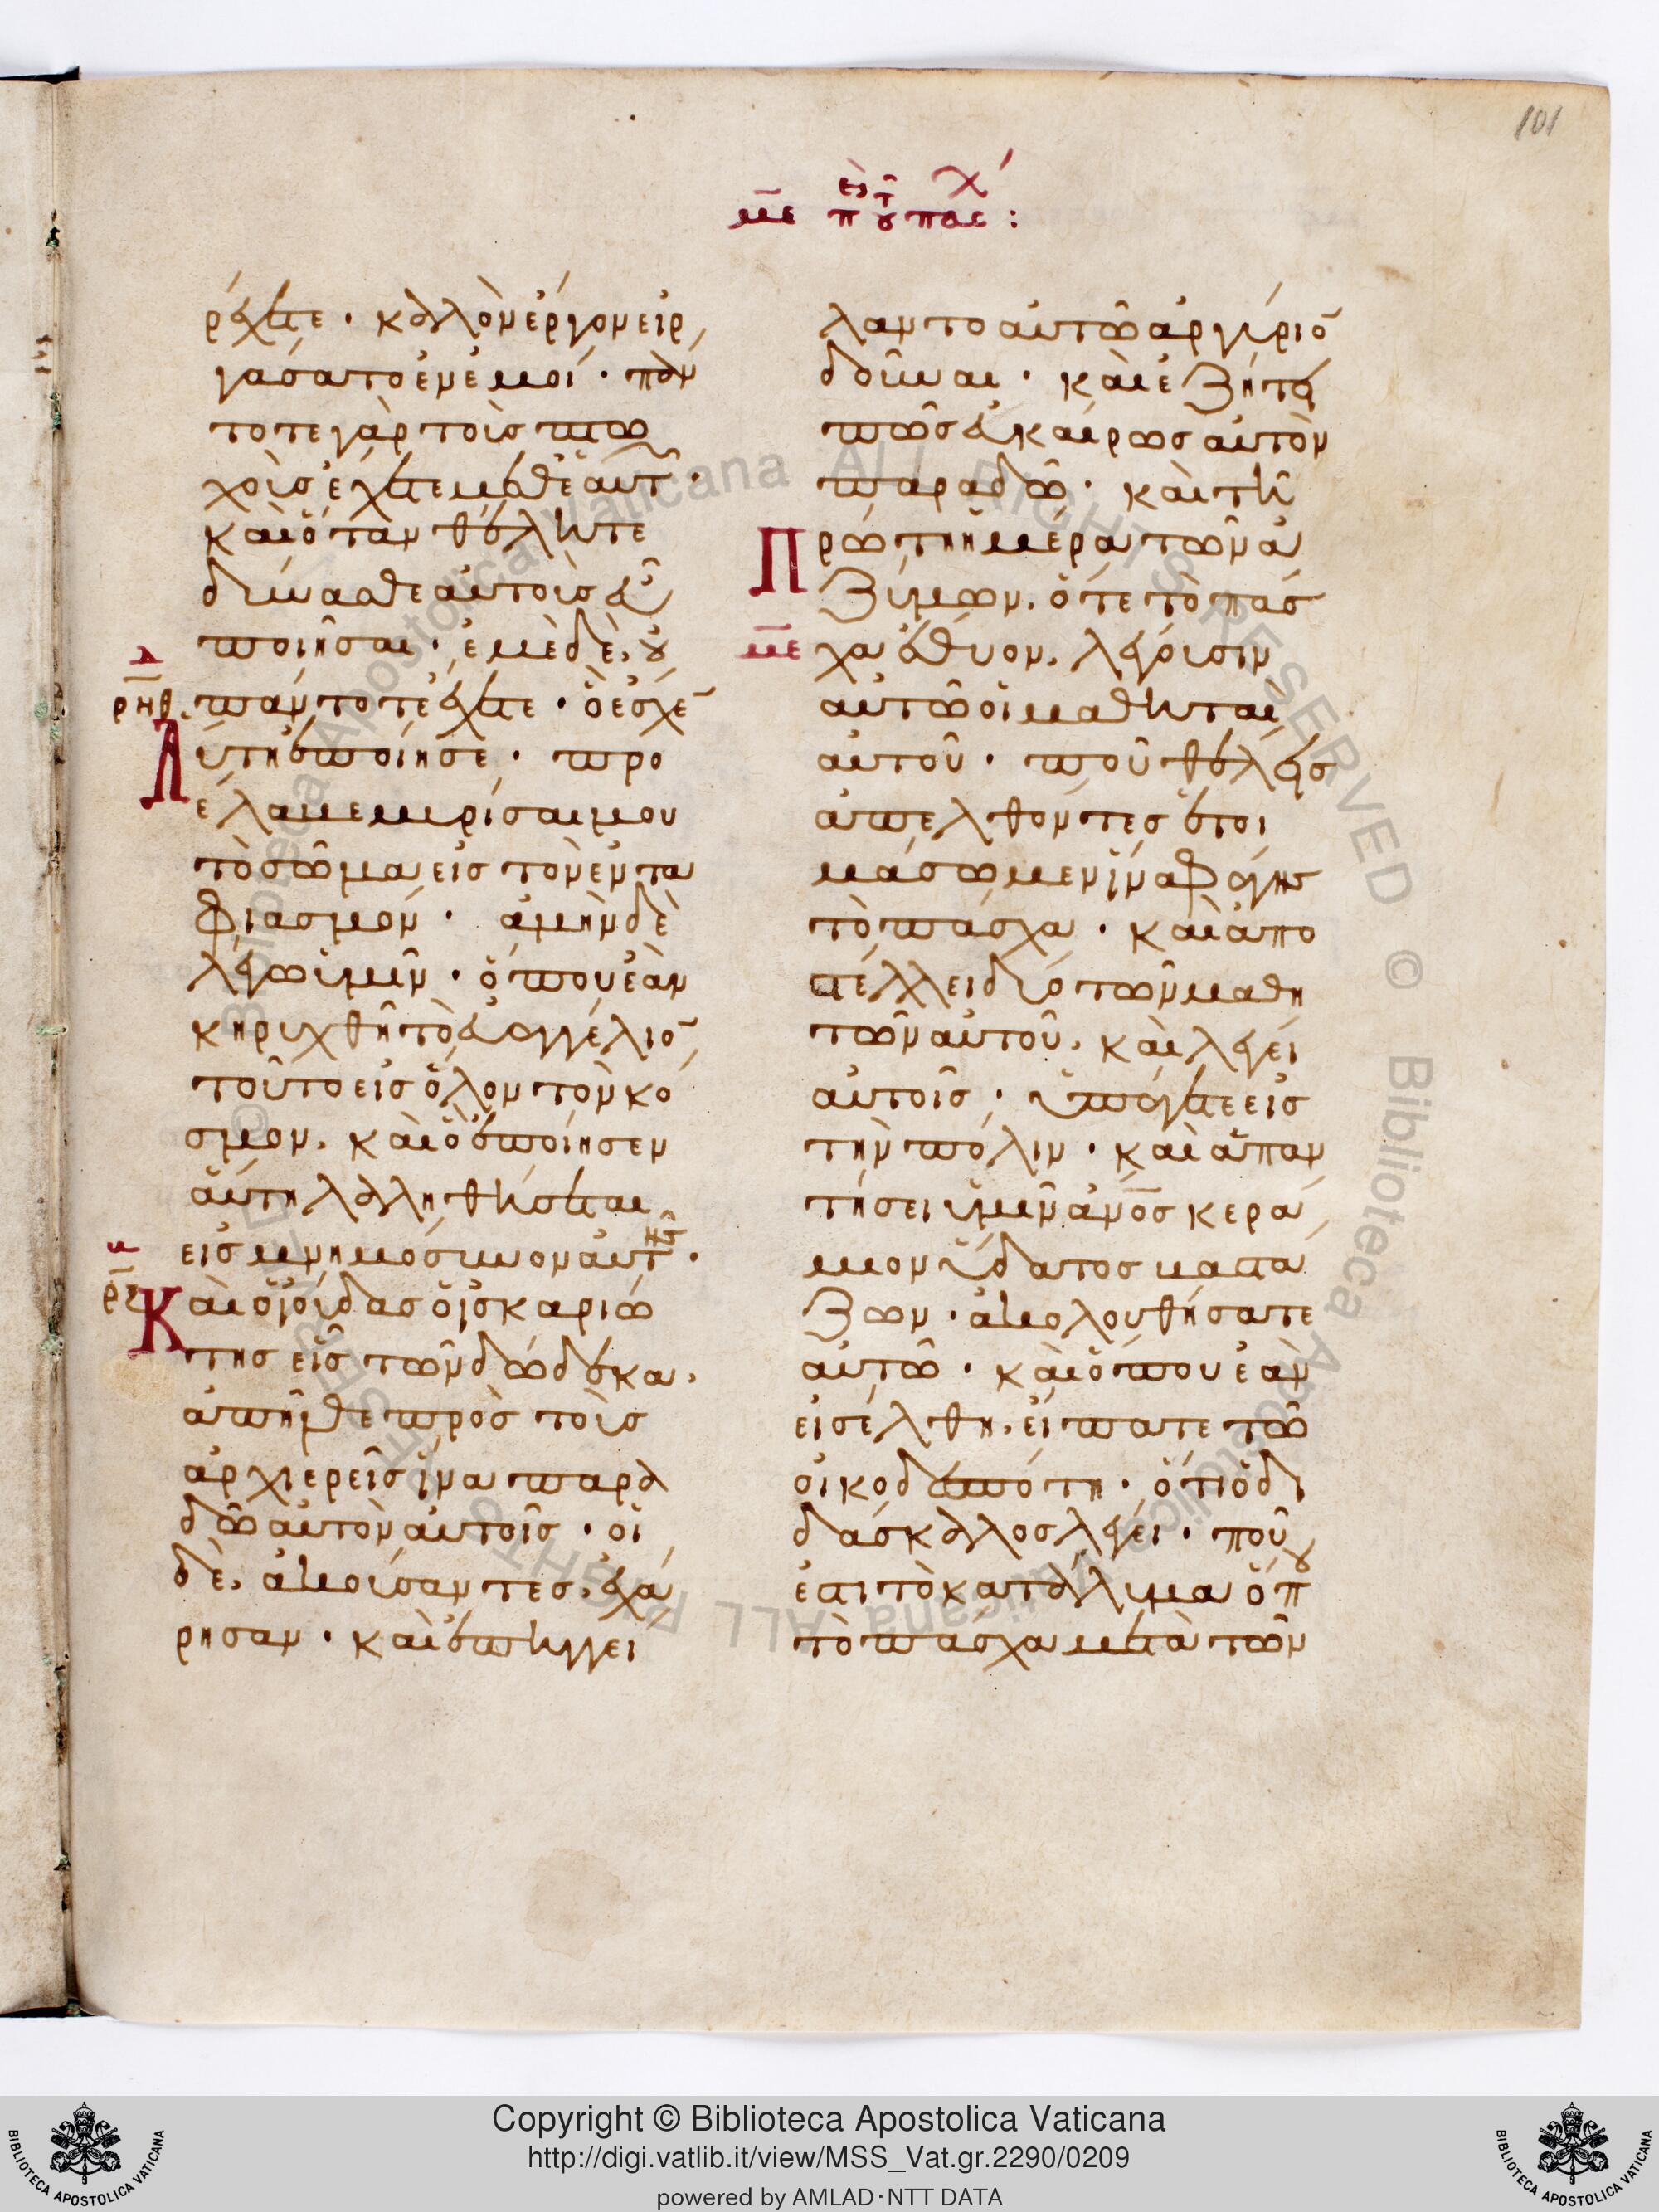 101
με ετ π τ χ ου πας :
ρέχετε · καλὸν ἔργον εἰρ
γάσατο ἐν ἐμοί · πάν
τοτε γὰρ τοὺς πτω
χοὺς ἔχετε μεθ' ἑαυτ ·
καὶ ὅταν θέλητε
δύνασθε αὐτοὺς εὖ
ποιῆσαι · ἐμὲ δὲ, οὐ
δ
ρνθ πάντοτε ἔχετε · ὃ ἔσχε̄
Αὕτη ἐποίησε · προ
έλαβε μυρίσαι μου
τὸ σῶμα εἰς τὸν ἐντα
φιασμόν · ἀμὴν δὲ
λέγω ὑμῖν · ὅπου ἐὰν
κηρυχθῆ τὸ εὐαγγέλιο̄
τοῦτο εἰς ὅλον τὸν κό
σμον, καὶ ὃ ἐποίησεν
αὕτη λαληθήσεται
εἰς μνημόσυνον αὐτῆς ·
ρξ Καὶ ὁ ἰούδας ὁ ἰσκαριώ
της εἷς τῶν δώδεκα,
ἀπῆλθε πρὸς τοὺς
ἀρχιερεῖς ἵνα παρα
δῶ αὐτὸν αὐτοῖς · οἱ
δὲ, ἀκούσαντες, ἐχά
ρησαν · καὶ ἐπηγγεί
λαντο αὐτῶ ἀργύριο̄
δοῦναι · καὶ ἐζήτει
πῶς εὐκαίρως αὐτὸν
παραδῶ · καὶ τῆ
Πρώτη ἡμέρα τῶν ἀ
ζύμων, ὅτε τὸ πάσ
με χα ἔθυον, λέγουσιν
αὐτῶ οἱ μαθηταὶ
αὐτοῦ · ποῦ θέλεις
ἀπελθόντες ἑτοι
μάσωμεν ἵνα φάγης
τὸ πάσχα · καὶ ἀπο
στέλλει δύο τῶν μαθη
τῶν αὐτοῦ, καὶ λέγει
αὐτοῖς · ὑπάγετε εἰς
τὴν πόλιν · καὶ ἀπαν
τήσει ὑμῖν ἄν̄ο̄ς κερά
μιον ὕδατος βαστά
ζων · ἀκολουθήσατε
αὐτῶ · καὶ ὅπου ἐὰν
εἰσέλθη, εἴπατε τῶ
οἰκοδεσπότη · ὅτι ὁ δι
δάσκαλος λέγει · ποῦ
ἐστι τὸ κατάλυμα ὅπου
τὸ πάσχα μετὰ τῶν
Copyright © Biblioteca Apostolica Vaticana
http://digi.vatlib.it/view/MSS_Vat.gr.2290/0209
powered by AMLAD·NTT DATA